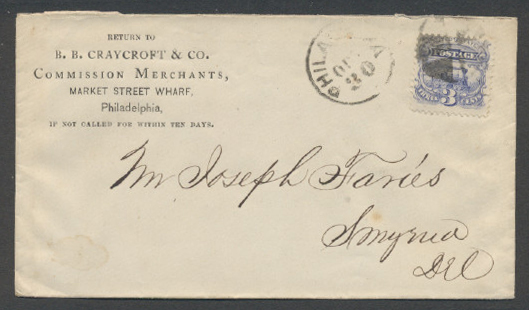 RETURN TO
B. B. CRAYCROFT & CO.
COMMISSION MERCHANTS,
MARKET STREET WHARF,
Philadelphia,
IF NOT CALLED FOR WITHIN TEN DAYS.
PHILA
30
POSTAGE
3
Mr Joseph Faries
Smyrna
Del